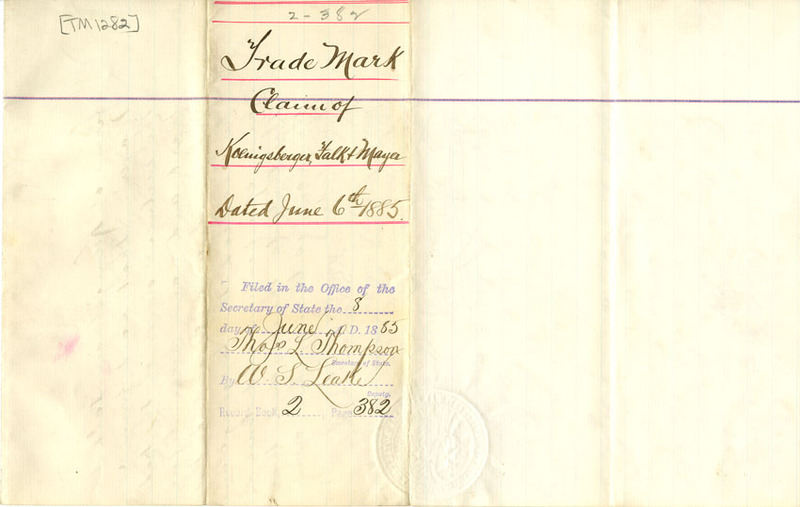 [TM1282]
2-382
Trade Mark
Claim of
Koenigsberger, Falk & Mayer
Dated June 6th 1885.
Filed in the Office of the
Secretary of State the 8
day of June A.D. 1885
Thos L. Thompson
Secretary of State.
By W S Leake
Deputy.
Record Book, 2 Page 382